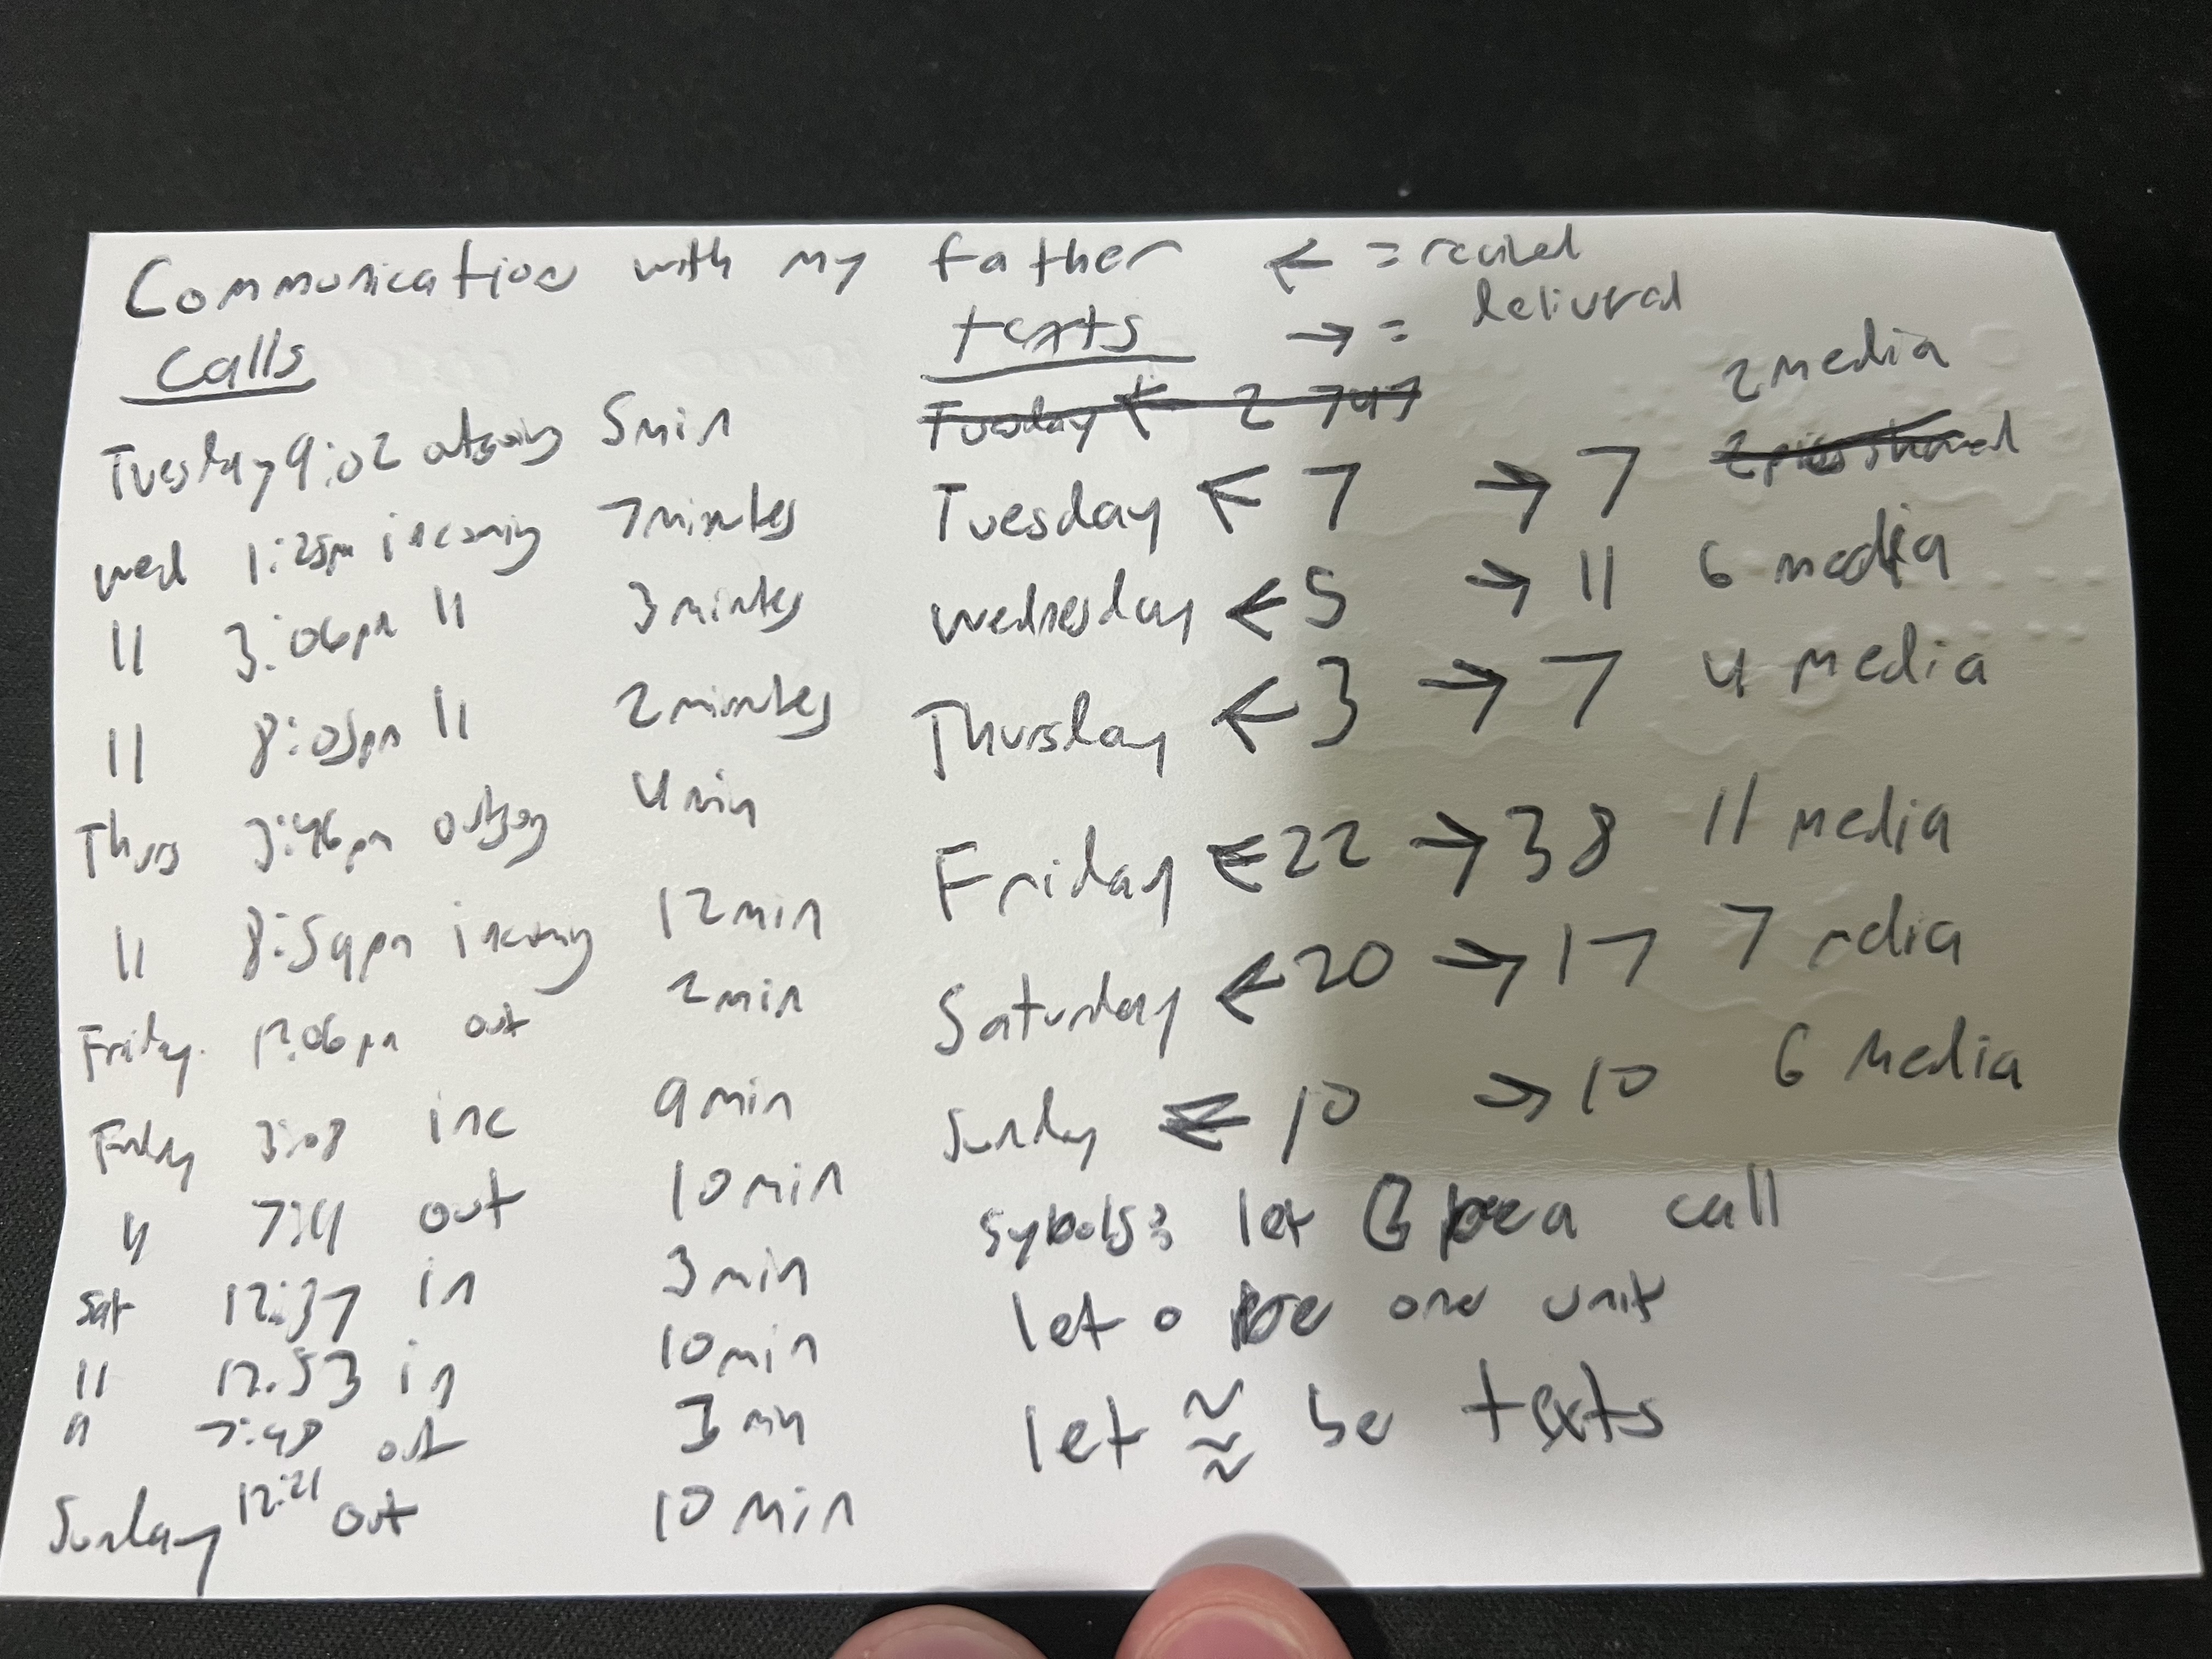 Communication with my father ← = recieved
→ = delivered
Calls
Tuesday 9:02 outgoing 5min
wed 1:25pm incoming 7minutes
11 3:06pm 11 3 minutes
11 8:05pm 11 2 minutes
Thurs 3:46pm outgoing 4 min
11 8:59pm incoming 12min
Friday. 12:06pm out 2min
Friday 3:08 inc 9min
11 out 10min
Sat 12:37 in 3min
11 12:53 in 10min
11 7:48 out 3 min
Sunday 12:21 out 10 min
texts
Tuesday ← 2
Tuesday ← 7 → 7 2 media
Wednesday ← 5 → 11 6 media
Thursday ← 3 → 7 4 media
Friday ← 22 → 38 11 media
Saturday ← 20 → 17 7 media
Sunday ← 10 → 10 6 Media
Sybols: let be a call
let o be one unit
let ≈ be texts